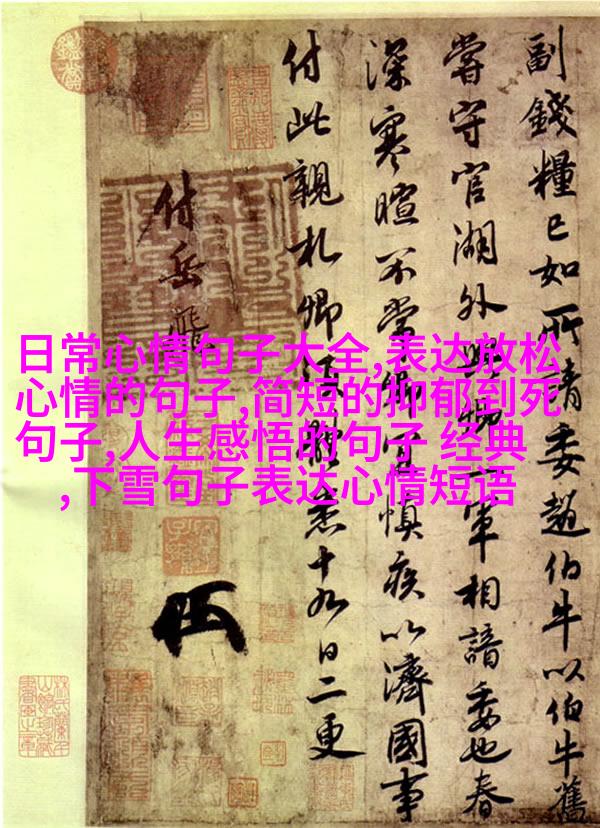 日常心情句子大全,表达放松
心情的句子,简短的抑郁到死
句子,人生感悟的句子 经典
,下雪句子表达心情短语
副錢糧已如所請委趙伯牛以伯牛舊
嘗守官湖外與一軍相諳委也春
深寒暄不常卿宜慎疾以濟國事
付此親札卿須體悉十九日二更
付岳飛